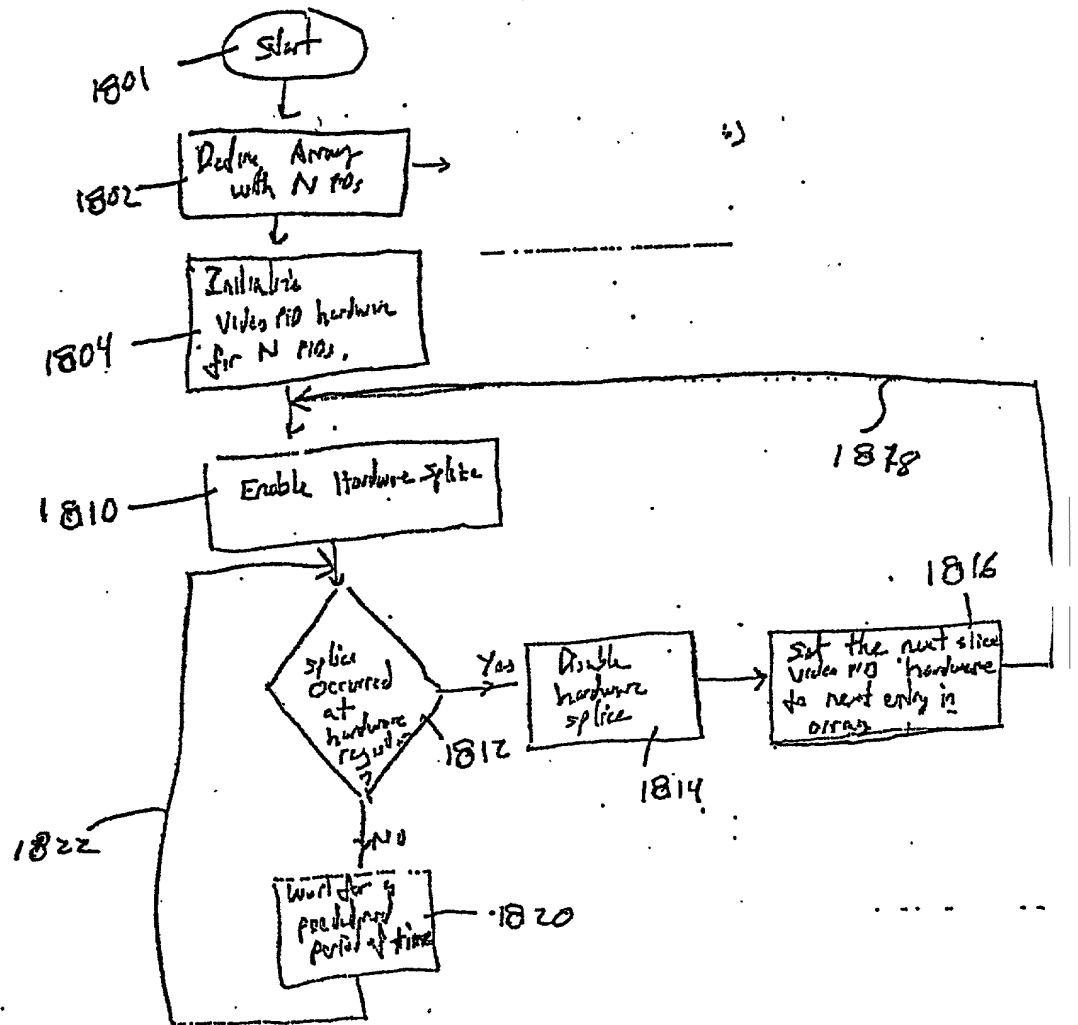 Start
1801
Define Array
with N PIDs
1802
Initialize
Video PID hardware
for N PIDs.
1804
1878
Enable Hardware Splice
1810
1816
splice
occurred
at
hardware
Yes
1812
Disable
hardware
splice
1814
Set the next slice
video PID hardware
to next entry in
array
1822
NO
Wait for a
predefined
period of time
1820